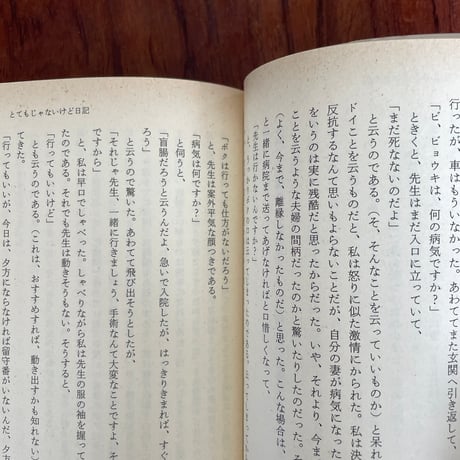 行ったが、車はもういなかった。あわててまた玄関へ引き返して、
「ビ、ビョウキは、何の病気ですか?」
ときくと、先生はまだ入口に立っていて、
「まだ死なないのだよ」
と云うのである。(そ、そんなことを云っていいものか)と呆れ
ドイことを云うものだと、私は怒りに似た激情にかられた。私は決
反抗するなんて思いもよらないことだが、自分の妻が病気になった
をいうのは実に残酷だと思ったからだった。いや、それより、今ま
ことを云うような夫婦の間柄だったのかと驚いたりしたのだった。そ
(よく、今まで、離縁しなかったものだ)と思った。こんな場合は、
と一緒に病院まで行ってあげなければと口惜しくなって、
「先生は行かないんですか?」
とてもじゃないけど日記
「ボクは行っても仕方がないだろう」
と、先生は案外平気な顔つきである。
「病気は何ですか?」
と伺うと、
「盲腸だろうと云うんだよ、急いで入院したが、はっきりきまれば、すぐ
ろう」
と云うので驚いた。あわてて飛び出そうとしたが、
「それじゃ先生、一緒に行きましょう、手術なんて大変なことですよ、そ
ですから」
と、私は早口でしゃべった。しゃべりながら私は先生の服の袖を握って
たのである。それでも先生は動きそうもない。そうすると、
「行ってもいいけど」
とも云うのである。(これは、おすすめすれば、動き出すかも知れない)
てきた。
「行ってもいいが、今日は、夕方にならなければ留守番がいないんだ、夕方